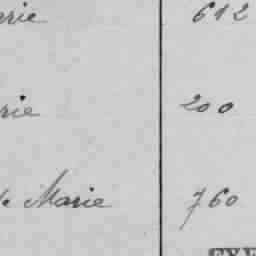 arie 612
rie 200
Marie 760